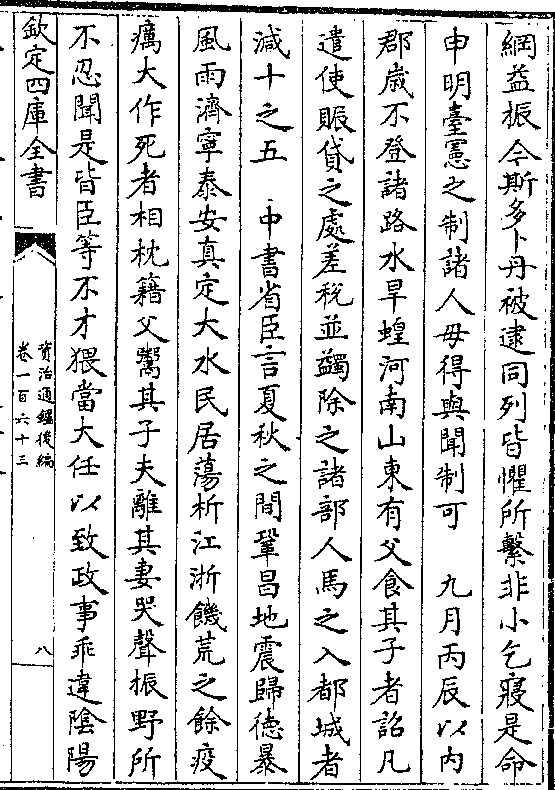 綱益振今斯多卜丹被逮同列皆懼所繫非小乞寢是命
申明臺憲之制諸人毋得與聞制可　九月丙辰以内
郡歲不登諸路水旱蝗河南山東有父食其子者詔凡
遣使賑貸之處差稅並蠲除之諸部人馬之入都城者
減十之五　中書省臣言夏秋之間鞏昌地震歸德暴
風雨濟寧泰安真定大水民居蕩析江浙饑荒之餘疫
癘大作死者相枕籍父鬻其子夫離其妻哭聲振野所
不忍聞是皆臣等不才猥當大任以致政事乖違陰陽
欽定四庫全書
資治通鑑後編
卷一百六十三
八